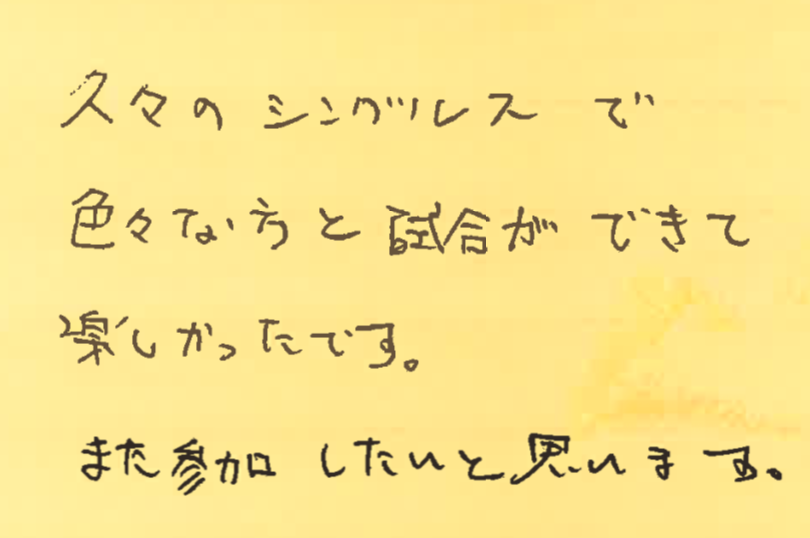 久々のシングルスで
色々な方と試合ができて
楽しかったです。
また参加したいと思います。